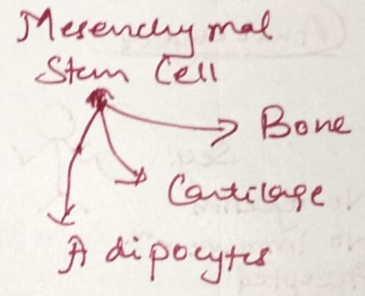 Mesenchymal
Stem Cell
Bone
Cartilage
Adipocytes